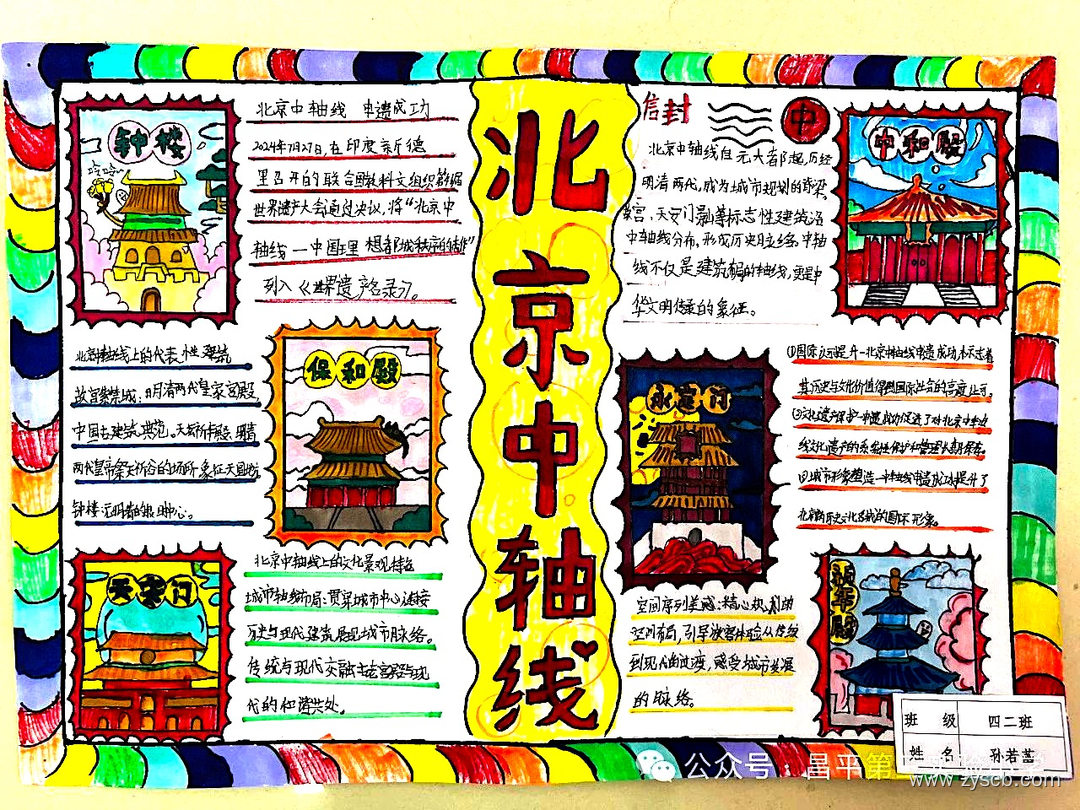 钟楼
北京中轴线 申遗成功
2024年7月27日,在印度新德
里召开的联合国教科文组织第46届
世界遗产大会通过决议,将“北京中
轴线—中国理想都城秩序的杰作”
列入《世界遗产名录》。
北京中轴线上的代表性建筑
故宫紫禁城:明清两代皇家宫殿,
中国古建筑典范。天坛祈年殿:明清
两代皇帝祭天祈谷的场所,象征天圆地方
钟楼:元明清的报时中心。
保和殿
天安门
北京中轴线上的文化景观特色
城市轴线布局:贯穿城市中心连接
历史与现代建筑展现城市脉络。
传统与现代交融:古老宫殿与现
代的和谐共处。
北京中轴线
信封
中
北京中轴线自元大都起,历经
明清两代,成为城市规划的脊梁
故宫、天安门、景山等标志性建筑沿
中轴线分布,形成历史脉络。中轴
线不仅是建筑的轴线,更是中
华文明传承的象征。
中和殿
永定门
①国际认可提升—北京中轴线申遗成功,标志着
其历史与文化价值得到国际社会的高度认可。
②文化遗产保护—申遗成功促进了对北京中轴
线文化遗产的系统性保护和管理长期保存。
③城市形象塑造—中轴线申遗成功提升了
北京历史文化名城的国际形象。
空间序列美感:精心规划的
空间布局,引导游客体验从传统
到现代的过渡,感受城市发展
的脉络。
祈年殿
班级 四二班
姓名 孙若菡
公众号·昌平第
www.zyscb.com